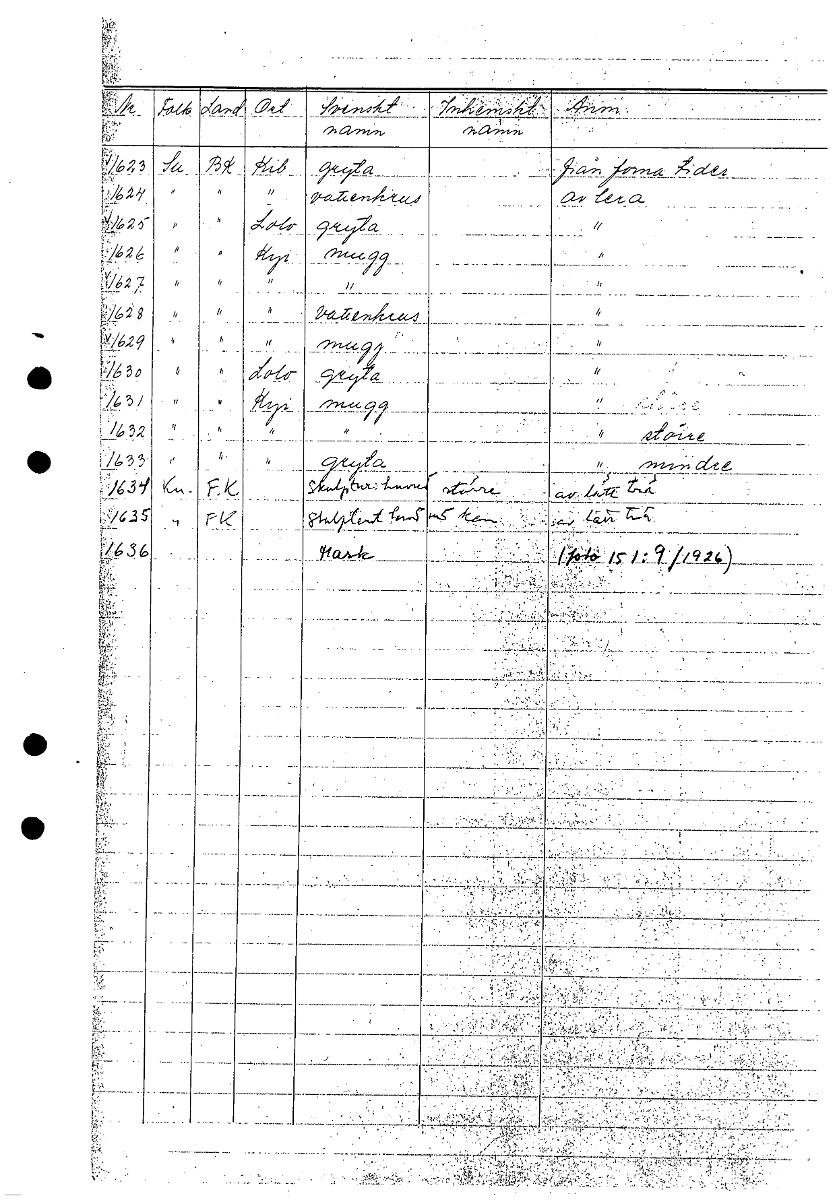 Nr Folk Land Ort Svenskt namn Inhemskt namn Anm.
1623 Su BK Kib gryta från forna tider
1624 " " " vattenkrus av lera
1625 " " Lolo gryta "
1626 " " Kyi mugg "
1627 " " " " "
1628 " " " vattenkrus "
1629 " " " mugg "
1630 " " Lolo gryta "
1631 " " Kyi mugg "
1632 " " " " " större
1633 " " " gryta " mindre
1634 Ku. F.K större av lätt trä
1635 " FK av lätt trä
1636 Mask (foto 151:9/1926)